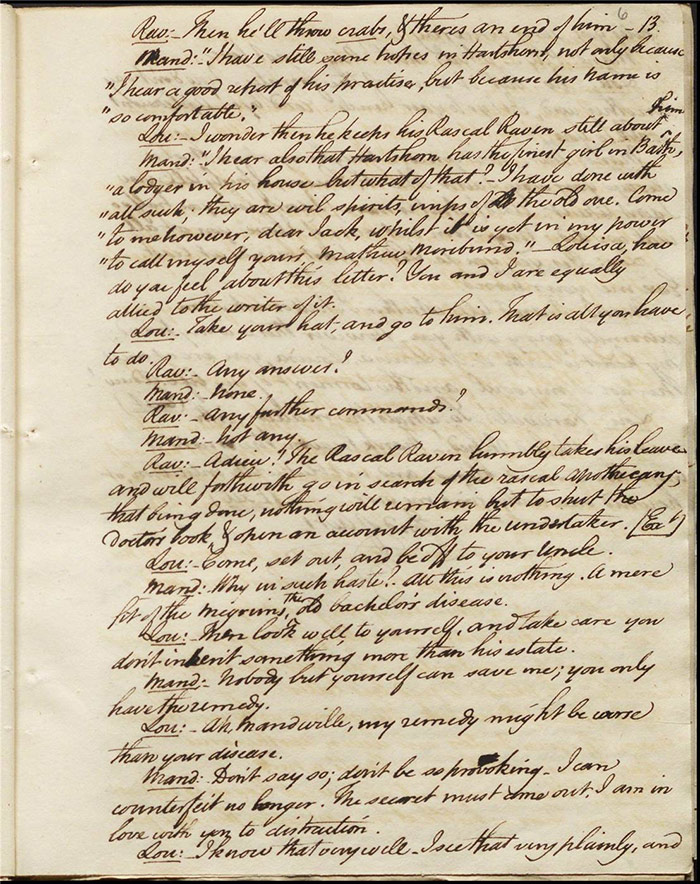 6
Rav:- Then he'll throw crabs, & theres an end of him - 13.
Mand: "I have still some hopes in Hartshorn, not only because
"I hear a good report of his practise, but because his name is
"so comfortable."
him
Lou:- I wonder then he keeps his Rascal Raven still about
Mand: "I hear also that Hartshorn has the finest girl in Bath,
"a lodger in his house - but what of that? - I have done with
"all such; they are evil spirits, imps of the old one. Come
"to me however, dear Jack, whilst it is yet in my power
"to call myself yours, Mathew Moribund." - Louisa, how
do you feel about this letter? You and I are equally
allied to the writer of it.
Lou:- Take your hat, and go to him. That is all you have
to do.
Rav:- Any answer?
Mand:- None.
Rav:- Any further commands?
Mand:- Not any.
Rav:- Adieu! The Rascal Raven humbly takes his leave
and will forthwith go in search of the rascal apothecary;
that being done, nothing will remain but to shut the
Doctor's book, & open an account with the undertaker. (Ext)
Lou:- Come, set out, and be off to your Uncle.
Mand: Why in such haste? All this is nothing. A mere
fit of the megrims, the old bachelor's disease.
Lou:- Then look well to yourself, and take care you
don't inherit something more than his estate.
Mand:- Nobody but yourself can save me; you only
have the remedy.
Lou:- Ah, Mandeville, my remedy might be worse
than your disease.
Mand:- Don't say so; don't be so provoking - I can
counterfeit no longer. The secret must come out. I am in
love with you to distraction.
Lou:- I know that very well - I see that very plainly, and